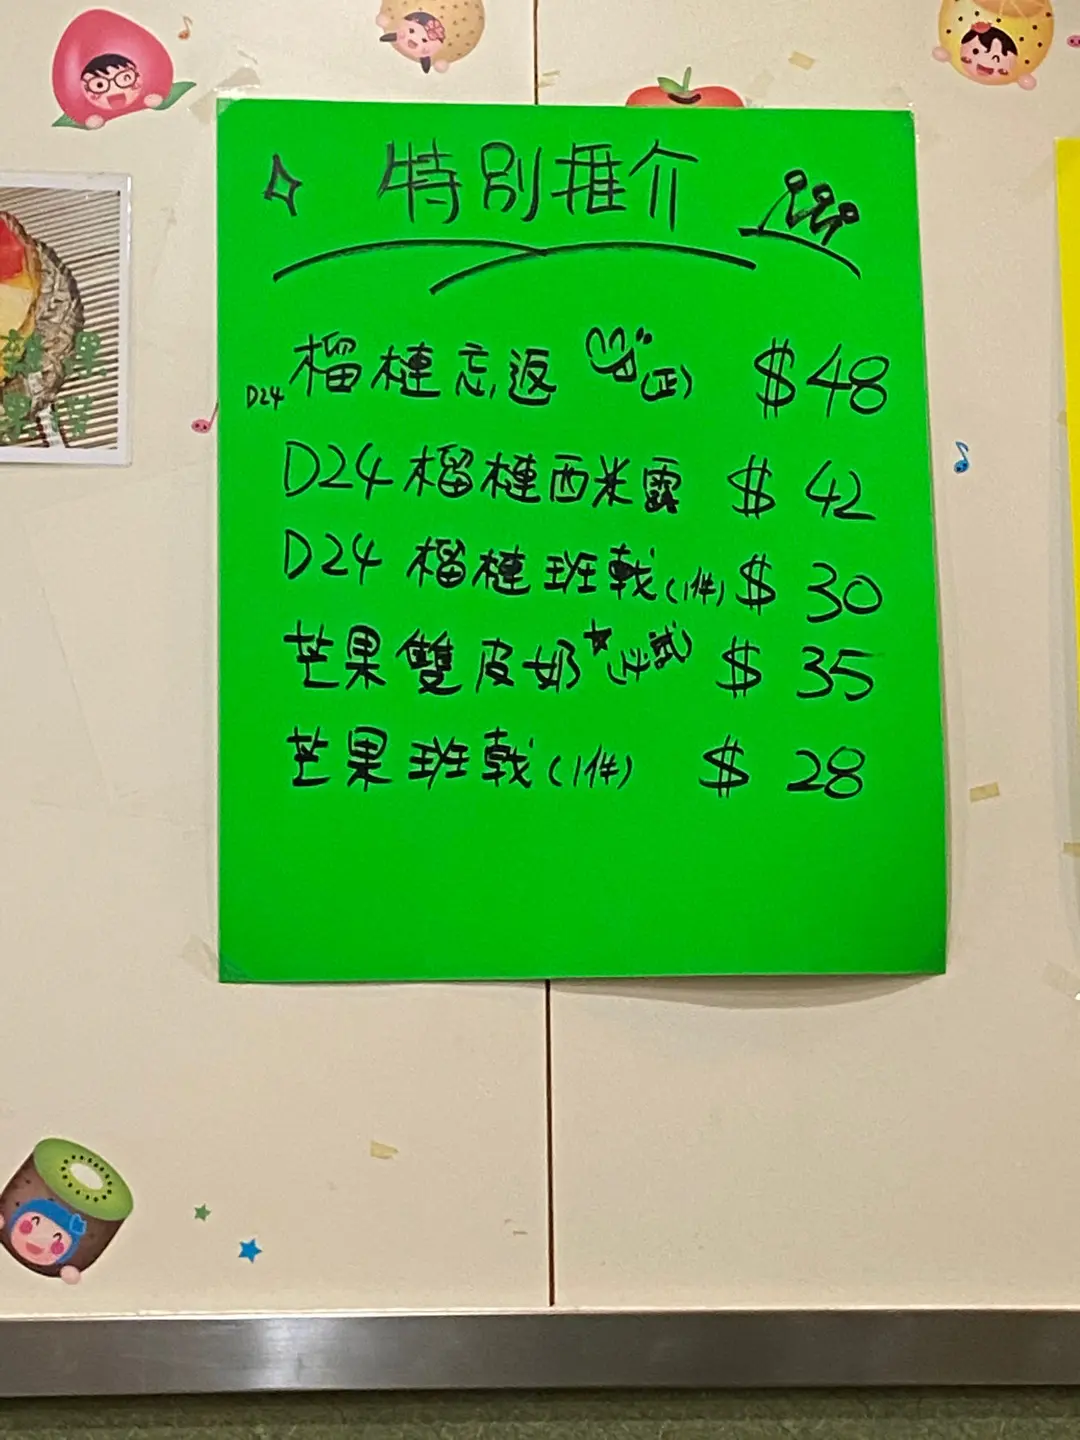 特別推介
D24 榴槤忘返 (正) $48
D24 榴槤西米露 $ 42
D24 榴槤班戟 (1件) $ 30
芒果雙皮奶 必試 $ 35
芒果班戟 (1件) $ 28